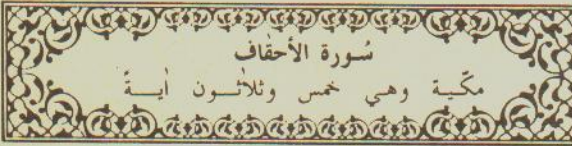 سُورة الأحقاف
مكّية وهي خمس وثلاثون أيـةً